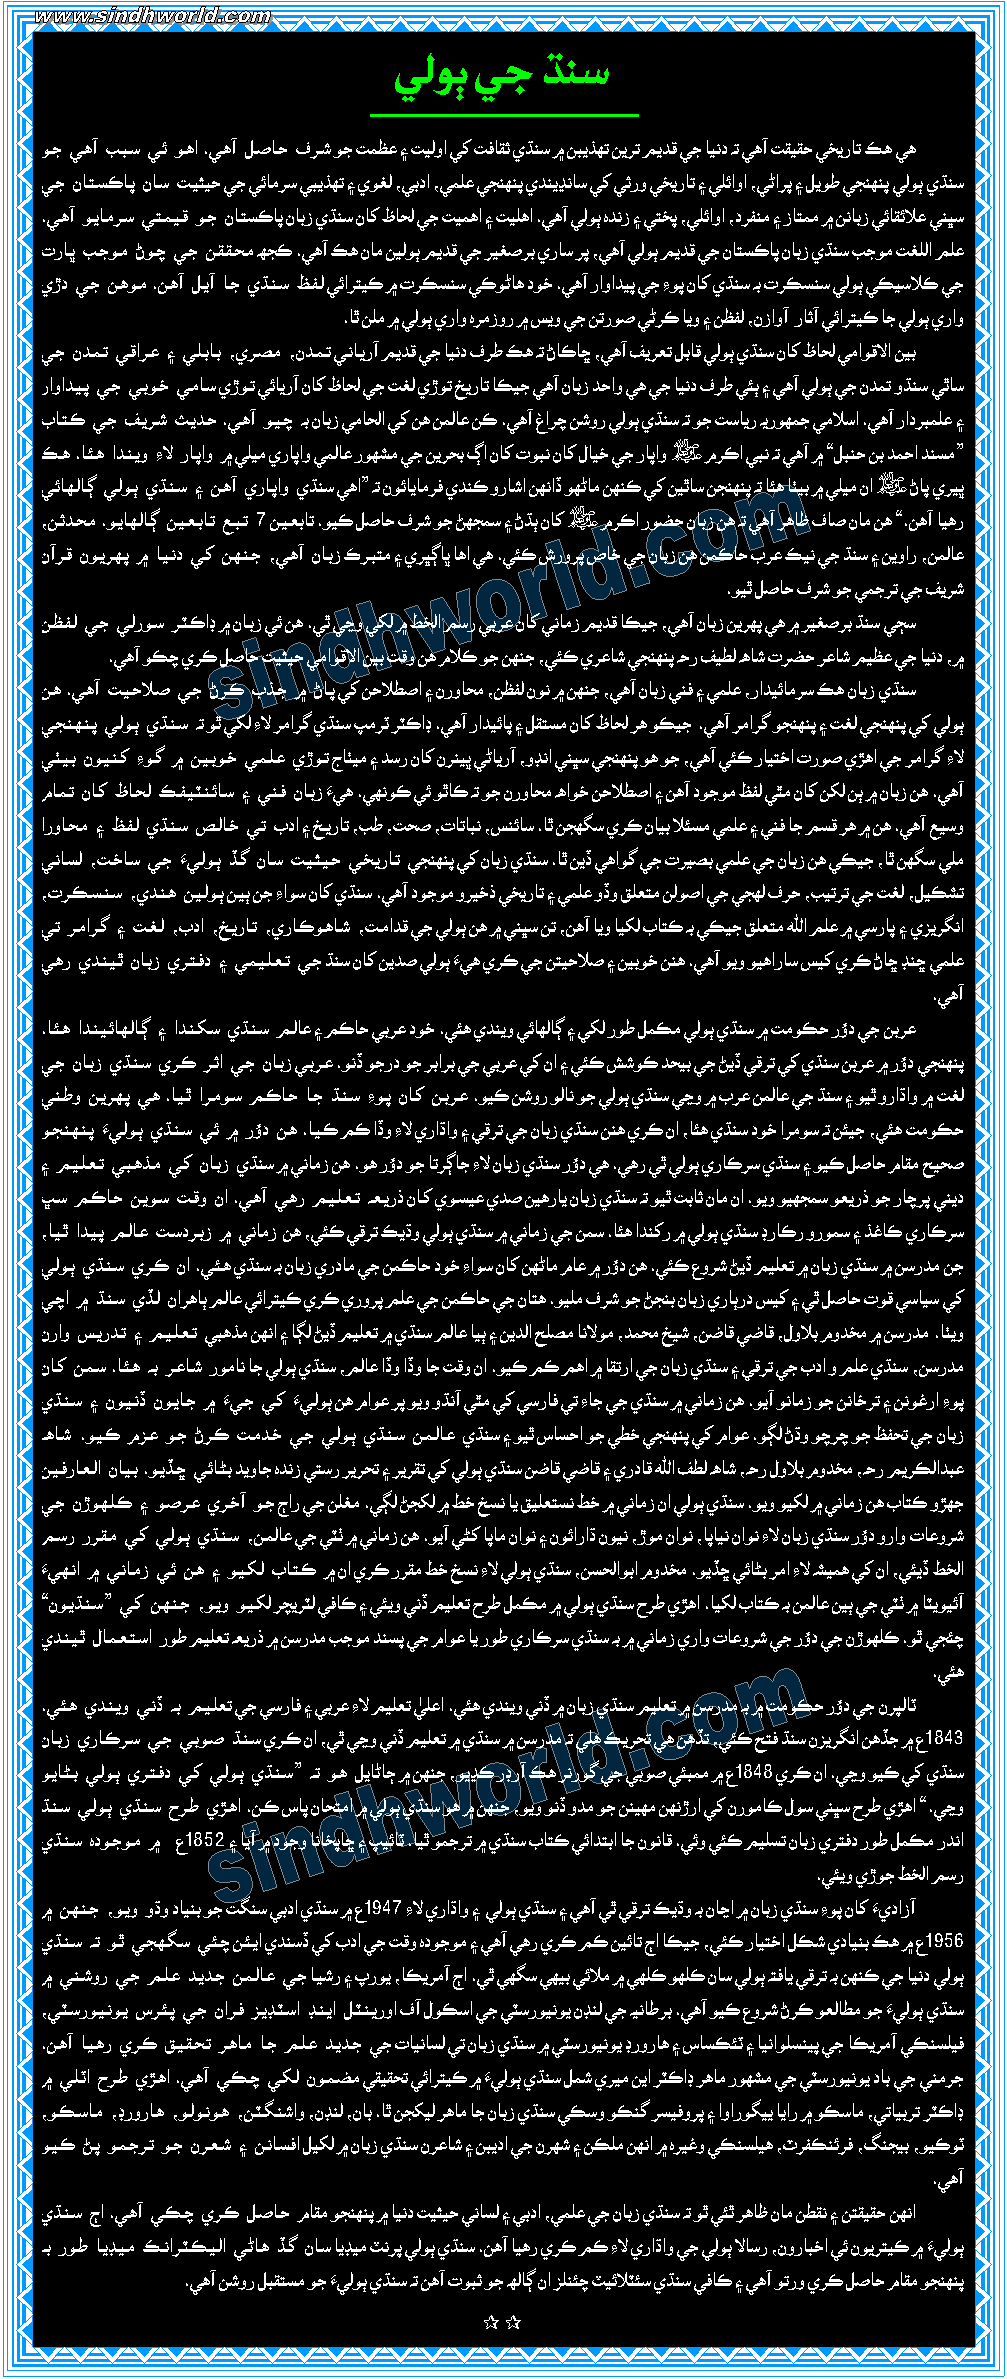 www.sindhworld.com
سنڌ جي ٻولي
هي هڪ تاريخي حقيقت آهي تہ دنيا جي قديم ترين تهذيبن ۾ سنڌي ثقافت کي اوليت ۽ عظمت جو شرف حاصل آهي. اهو ئي سبب آهي جو
سنڌي ٻولي پنهنجي طويل ۽ پراڻي، اوائلي ۽ تاريخي ورثي کي سانڍيندي پنهنجي علمي، ادبي، لغوي ۽ تهذيبي سرمائي جي حيثيت سان پاڪستان جي
سڀني علائقائي زبانن ۾ ممتاز ۽ منفرد، اوائلي، پختي ۽ زنده ٻولي آهي. اهليت ۽ اهميت جي لحاظ کان سنڌي زبان پاڪستان جو قيمتي سرمايو آهي.
علم اللغت موجب سنڌي زبان پاڪستان جي قديم ٻولي آهي، پر ساري برصغير جي قديم ٻولين مان هڪ آهي. ڪجهہ محققن جي چوڻ موجب ڀارت
جي ڪلاسيڪي ٻولي سنسڪرت بہ سنڌي کان پوءِ جي پيداوار آهي. خود هاڻوڪي سنسڪرت ۾ ڪيترائي لفظ سنڌي جا آيل آهن. موهن جي دڙي
واري ٻولي جا ڪيترائي آثار آوازن، لفظن ۽ ويا ڪرڻي صورتن جي ويس ۾ روزمره واري ٻولي ۾ ملن ٿا.
بين الاقوامي لحاظ کان سنڌي ٻولي قابل تعريف آهي، ڇاڪاڻ تہ هڪ طرف دنيا جي قديم آريائي تمدن، مصري، بابلي ۽ عراقي تمدن جي
ساٿي سنڌو تمدن جي ٻولي آهي ۽ ٻئي طرف دنيا جي هي واحد زبان آهي جيڪا تاريخ توڙي لغت جي لحاظ کان آريائي توڙي سامي خوبي جي پيداوار
۽ علمبردار آهي. اسلامي جمهوريہ رياست جو تہ سنڌي ٻولي روشن چراغ آهي. ڪن عالمن هن کي الحامي زبان بہ چيو آهي. حديث شريف جي ڪتاب
”مسند احمد بن حنبل“ ۾ آهي تہ نبي اڪرم ﷺ واپار جي خيال کان نبوت کان اڳ بحرين جي مشهور عالمي واپاري ميلي ۾ واپار لاءِ ويندا هئا. هڪ
ڀيري پاڻ ﷺ ان ميلي ۾ بيٺا هئا تہ پنهنجن ساٿين کي ڪنهن ماڻهو ڏانهن اشارو ڪندي فرمايائون تہ ”اهي سنڌي واپاري آهن ۽ سنڌي ٻولي ڳالهائي
رهيا آهن.“ هن مان صاف ظاهر آهي تہ هن زبان حضور اڪرم ﷺ کان ٻڌڻ ۽ سمجهڻ جو شرف حاصل ڪيو. تابعين 7 تبع تابعين ڳالهايو. محدثن،
عالمن، راوين ۽ سنڌ جي نيڪ عرب حاڪمن هن زبان جي خاص پرورش ڪئي. هي اها ڀاڳيري ۽ متبرڪ زبان آهي، جنهن کي دنيا ۾ پهريون قرآن
شريف جي ترجمي جو شرف حاصل ٿيو.
سڄي سنڌ برصغير ۾ هي پهرين زبان آهي، جيڪا قديم زماني کان عربي رسم الخط ۾ لکي وڃي ٿي. هن ئي زبان ۾ ڊاڪٽر سورلي جي لفظن
۾، دنيا جي عظيم شاعر حضرت شاهہ لطيف رحہ پنهنجي شاعري ڪئي، جنهن جو ڪلام هن وقت بين الاقوامي حيثيت حاصل ڪري چڪو آهي.
سنڌي زبان هڪ سرمائيدار، علمي ۽ فني زبان آهي، جنهن ۾ نون لفظن، محاورن ۽ اصطلاحن کي پاڻ ۾ جذب ڪرڻ جي صلاحيت آهي. هن
ٻولي کي پنهنجي لغت ۽ پنهنجو گرامر آهي. جيڪو هر لحاظ کان مستقل ۽ پائيدار آهي. ڊاڪٽر ٽرمپ سنڌي گرامر لاءِ لکي ٿو تہ سنڌي ٻولي پنهنجي
لاءِ گرامر جي اهڙي صورت اختيار ڪئي آهي، جو هو پنهنجي سڀني انڊو، آريائي ڀينرن کان رسد ۽ ميٿاج توڙي علمي خوبين ۾ گوءِ کنيون بيٺي
آهي. هن زبان ۾ ٻن لکن کان مٿي لفظ موجود آهن ۽ اصطلاحن خواهہ محاورن جو تہ ڪاٿو ئي ڪونهي. هيءَ زبان فني ۽ سائنٽيفڪ لحاظ کان تمام
وسيع آهي. هن ۾ هر قسم جا فني ۽ علمي مسئلا بيان ڪري سگهجن ٿا. سائنس، نباتات، صحت، طب، تاريخ ۽ ادب تي خالص سنڌي لفظ ۽ محاورا
ملي سگهن ٿا، جيڪي هن زبان جي علمي بصيرت جي گواهي ڏين ٿا. سنڌي زبان کي پنهنجي تاريخي حيثيت سان گڏ ٻوليءَ جي ساخت، لساني
تشڪيل، لغت جي ترتيب، حرف لهجي جي اصولن متعلق وڏو علمي ۽ تاريخي ذخيرو موجود آهي. سنڌي کان سواءِ جن ٻين ٻولين هندي، سنسڪرت،
انگريزي ۽ پارسي ۾ علم الله متعلق جيڪي بہ ڪتاب لکيا ويا آهن، تن سڀني ۾ هن ٻولي جي قدامت، شاهوڪاري، تاريخ، ادب، لغت ۽ گرامر تي
علمي ڇنڊ ڇاڻ ڪري کيس ساراهيو ويو آهي. هنن خوبين ۽ صلاحيتن جي ڪري هيءَ ٻولي صدين کان سنڌ جي تعليمي ۽ دفتري زبان ٿيندي رهي
آهي.
عربن جي دؤر حڪومت ۾ سنڌي ٻولي مڪمل طور لکي ۽ ڳالهائي ويندي هئي. خود عربي حاڪم ۽ عالم سنڌي سکندا ۽ ڳالهائيندا هئا.
پنهنجي دؤر ۾ عربن سنڌي کي ترقي ڏيڻ جي بيحد ڪوشش ڪئي ۽ ان کي عربي جي برابر جو درجو ڏنو. عربي زبان جي اثر ڪري سنڌي زبان جي
لغت ۾ واڌارو ٿيو ۽ سنڌ جي عالمن عرب ۾ وڃي سنڌي ٻولي جو نالو روشن ڪيو. عربن کان پوءِ سنڌ جا حاڪم سومرا ٿيا. هي پهرين وطني
حڪومت هئي، جيئن تہ سومرا خود سنڌي هئا، ان ڪري هنن سنڌي زبان جي ترقي ۽ واڌاري لاءِ وڏا ڪم ڪيا. هن دؤر ۾ ئي سنڌي ٻوليءَ پنهنجو
صحيح مقام حاصل ڪيو ۽ سنڌي سرڪاري ٻولي ٿي رهي. هي دؤر سنڌي زبان لاءِ جاڳرتا جو دؤر هو. هن زماني ۾ سنڌي زبان کي مذهبي تعليم ۽
ديني پرچار جو ذريعو سمجهيو ويو. ان مان ثابت ٿيو تہ سنڌي زبان يارهين صدي عيسوي کان ذريعہ تعليم رهي آهي. ان وقت سوين حاڪم سڀ
سرڪاري ڪاغذ ۽ سمورو رڪارڊ سنڌي ٻولي ۾ رکندا هئا. سمن جي زماني ۾ سنڌي ٻولي وڌيڪ ترقي ڪئي، هن زماني ۾ زبردست عالم پيدا ٿيا،
جن مدرسن ۾ سنڌي زبان ۾ تعليم ڏيڻ شروع ڪئي. هن دؤر ۾ عام ماڻهن کان سواءِ خود حاڪمن جي مادري زبان بہ سنڌي هئي. ان ڪري سنڌي ٻولي
کي سياسي قوت حاصل ٿي ۽ کيس درٻاري زبان بنجڻ جو شرف مليو. هتان جي حاڪمن جي علم پروري ڪري ڪيترائي عالم ٻاهران لڏي سنڌ ۾ اچي
ويٺا. مدرسن ۾ مخدوم بلاول، قاضي قاضن، شيخ محمد، مولانا مصلح الدين ۽ ٻيا عالم سنڌي ۾ تعليم ڏيڻ لڳا ۽ انهن مذهبي تعليم ۽ تدريس وارن
مدرسن، سنڌي علم و ادب جي ترقي ۽ سنڌي زبان جي ارتقا ۾ اهم ڪم ڪيو. ان وقت جا وڏا وڏا عالم، سنڌي ٻولي جا نامور شاعر بہ هئا. سمن کان
پوءِ ارغونن ۽ ترخانن جو زمانو آيو. هن زماني ۾ سنڌي جي جاءِ تي فارسي کي مٿي آندو ويو پر عوام هن ٻوليءَ کي جيءَ ۾ جايون ڏنيون ۽ سنڌي
زبان جي تحفظ جو چرچو وڌڻ لڳو. عوام کي پنهنجي خطي جو احساس ٿيو ۽ سنڌي عالمن سنڌي ٻولي جي خدمت ڪرڻ جو عزم ڪيو. شاهہ
عبدالڪريم رحہ، مخدوم بلاول رحہ، شاهہ لطف الله قادري ۽ قاضي قاضن سنڌي ٻولي کي تقرير ۽ تحرير رستي زنده جاويد بڻائي ڇڏيو. بيان العارفين
جهڙو ڪتاب هن زماني ۾ لکيو ويو. سنڌي ٻولي ان زماني ۾ خط نستعليق يا نسخ خط ۾ لکجڻ لڳي. مغلن جي راڄ جو آخري عرصو ۽ ڪلهوڙن جي
شروعات وارو دؤر سنڌي زبان لاءِ نوان نياپا، نوان موڙ، نيون ڌارائون ۽ نوان ماپا کڻي آيو. هن زماني ۾ ٺٽي جي عالمن، سنڌي ٻولي کي مقرر رسم
الخط ڏيئي، ان کي هميشہ لاءِ امر بڻائي ڇڏيو. مخدوم ابوالحسن، سنڌي ٻولي لاءِ نسخ خط مقرر ڪري ان ۾ ڪتاب لکيو ۽ هن ئي زماني ۾ انهيءَ
آئيويٽا ۾ ٺٽي جي ٻين عالمن بہ ڪتاب لکيا. اهڙي طرح سنڌي ٻولي ۾ مڪمل طرح تعليم ڏني ويئي ۽ ڪافي لٽريچر لکيو ويو، جنهن کي ”سنڌيون“
چئجي ٿو. ڪلهوڙن جي دؤر جي شروعات واري زماني ۾ بہ سنڌي سرڪاري طور يا عوام جي پسند موجب مدرسن ۾ ذريعہ تعليم طور استعمال ٿيندي
هئي.
ٽالپرن جي دؤر حڪومت ۾ بہ مدرسن ۾ تعليم سنڌي زبان ۾ ڏني ويندي هئي. اعليٰ تعليم لاءِ عربي ۽ فارسي جي تعليم بہ ڏني ويندي هئي.
1843ع ۾ جڏهن انگريزن سنڌ فتح ڪئي، تڏهن هي تحريڪ هلي تہ مدارسن ۾ سنڌي ۾ تعليم ڏني وڃي ٿي، ان ڪري سنڌ صوبي جي سرڪاري زبان
سنڌي کي ڪيو وڃي. ان ڪري 1848ع ۾ ممبئي صوبي جي گورنر هڪ آرڊر ڪڍيو، جنهن ۾ ڄاڻايل هو تہ ”سنڌي ٻولي کي دفتري ٻولي بڻايو
وڃي.“ اهڙي طرح سڀني سول ڪامورن کي ارڙنهن مهينن جو مدو ڏنو ويو، جنهن ۾ هو سنڌي ٻولي ۾ امتحان پاس ڪن. اهڙي طرح سنڌي ٻولي سنڌ
اندر مڪمل طور دفتري زبان تسليم ڪئي وئي. قانون جا ابتدائي ڪتاب سنڌي ۾ ترجمو ٿيا. ٽائيپ ۽ ڇاپخانا وجود ۾ آيا ۽ 1852ع ۾ موجوده سنڌي
رسم الخط جوڙي ويئي.
آزاديءَ کان پوءِ سنڌي زبان ۾ اڃان بہ وڌيڪ ترقي ٿي آهي ۽ سنڌي ٻولي ۽ واڌاري لاءِ 1947ع ۾ سنڌي ادبي سنگت جو بنياد وڌو ويو، جنهن ۾
1956ع ۾ هڪ بنيادي شڪل اختيار ڪئي، جيڪا اڄ تائين ڪم ڪري رهي آهي ۽ موجوده وقت جي ادب کي ڏسندي ايئن چئي سگهجي ٿو تہ سنڌي
ٻولي دنيا جي ڪنهن بہ ترقي يافتہ ٻولي سان ڪلهو ڪلهي ۾ ملائي بيهي سگهي ٿي. اڄ آمريڪا، يورپ ۽ رشيا جي عالمن جديد علم جي روشني ۾
سنڌي ٻوليءَ جو مطالعو ڪرڻ شروع ڪيو آهي. برطانيہ جي لنڊن يونيورسٽي جي اسڪول آف اورينٽل اينڊ اسٽڊيز فران جي پئرس يونيورسٽي،
فيلسنڪي آمريڪا جي پينسلوانيا ۽ ٽئڪساس ۽ هارورڊ يونيورسٽي ۾ سنڌي زبان تي لسانيات جي جديد علم جا ماهر تحقيق ڪري رهيا آهن.
جرمني جي باد يونيورسٽي جي مشهور ماهر ڊاڪٽر اين ميري شمل سنڌي ٻوليءَ ۾ ڪيترائي تحقيقي مضمون لکي چڪي آهي. اهڙي طرح اٽلي ۾
ڊاڪٽر تريياتي، ماسڪو ۾ رايا بيگوراوا ۽ پروفيسر گنڪو وسڪي سنڌي زبان جا ماهر ليکجن ٿا. بان، لنڊن، واشنگٽن، هونولو، هارورڊ، ماسڪو،
ٽوڪيو، بيجنگ، فرئنڪفرٽ، هيلسنڪي وغيره ۾ انهن ملڪن ۽ شهرن جي اديبن ۽ شاعرن سنڌي زبان ۾ لکيل افسانن ۽ شعرن جو ترجمو پڻ ڪيو
آهي.
انهن حقيقتن ۽ نقطن مان ظاهر ٿئي ٿو تہ سنڌي زبان جي علمي، ادبي ۽ لساني حيثيت دنيا ۾ پنهنجو مقام حاصل ڪري چڪي آهي. اڄ سنڌي
ٻوليءَ ۾ ڪيتريون ئي اخبارون، رسالا ٻولي جي واڌاري لاءِ ڪم ڪري رهيا آهن. سنڌي ٻولي پرنٽ ميڊيا سان گڏ هاڻي اليڪٽرانڪ ميڊيا طور بہ
پنهنجو مقام حاصل ڪري ورتو آهي ۽ ڪافي سنڌي سئٽلائيٽ چئنلز ان ڳالهہ جو ثبوت آهن تہ سنڌي ٻوليءَ جو مستقبل روشن آهي.
sindhworld.com
sindhworld.com